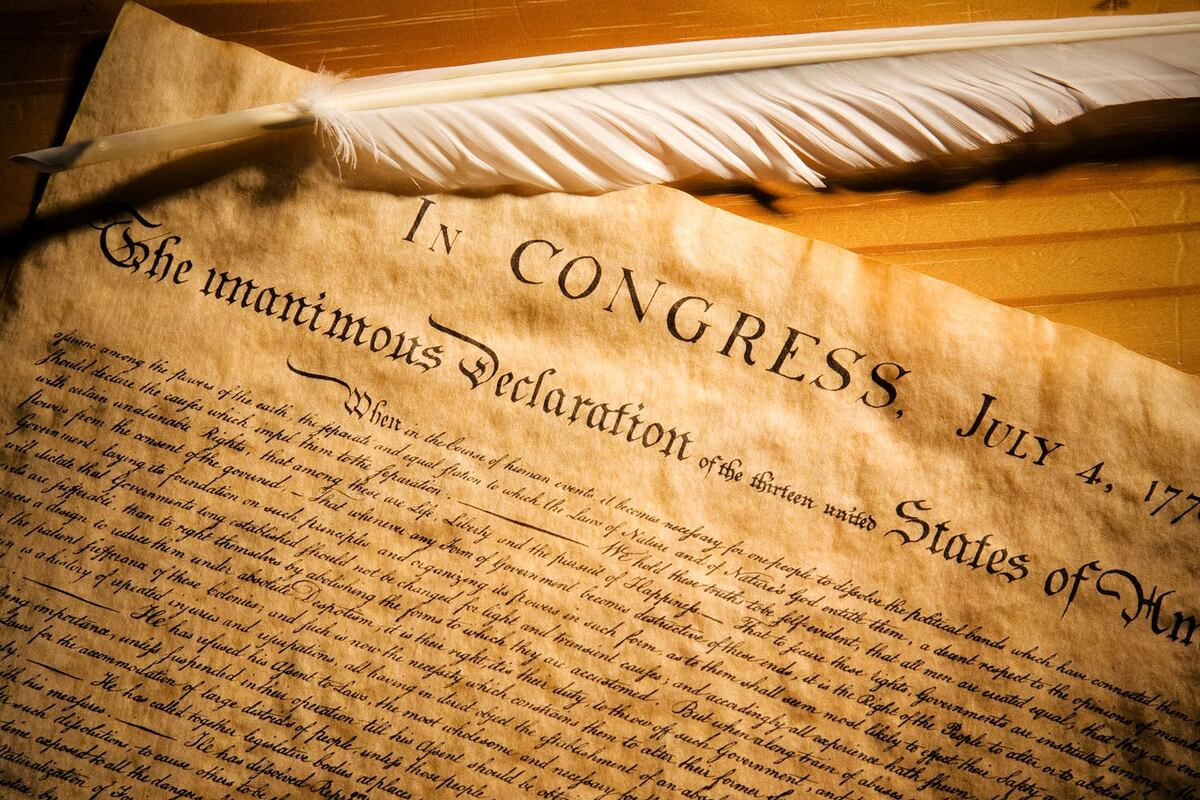 In CONGRESS, July 4, 177
The unanimous Declaration of the thirteen united States of Am
When in the Course of human events it becomes necessary for one people to dissolve the political bands which have connected them
assume among the powers of the earth, the separate and equal station to which the Laws of Nature and of Nature's God entitle them, a decent respect to the opinions of
should declare the causes which impel them to the separation. We hold these truths to be self-evident, that all men are created equal, that they are
with certain unalienable Rights, that among these are Life, Liberty and the pursuit of Happiness— That to secure these rights, Governments are instituted among
from the consent of the governed,— That whenever any Form of Government becomes destructive of these ends, it is the Right of the People to alter or to abolish
Government, laying its foundation on such principles and organizing its powers in such form, as to them shall seem most likely to effect their Safety
will dictate that Governments long established should not be changed for light and transient causes; and accordingly all experience hath shewn,
are sufferable, than to right themselves by abolishing the forms to which they are accustomed. But when a long train of abuses
a design to reduce them under absolute Despotism, it is their right, it is their duty, to throw off such Government, and
the patient sufferance of these Colonies; and such is now the necessity which constrains them to alter their former
is a history of repeated injuries and usurpations, all having in direct object the establishment of an
He has refused his Assent to Laws, the most wholesome and necessary for
importance, unless suspended in their operation till his Assent should be
Laws for the accommodation of large districts of people, unless those people
He has called together legislative bodies at places
his measures. He has dissolved
such dissolutions, to cause others to be
time exposed to all the dangers
Naturalization of